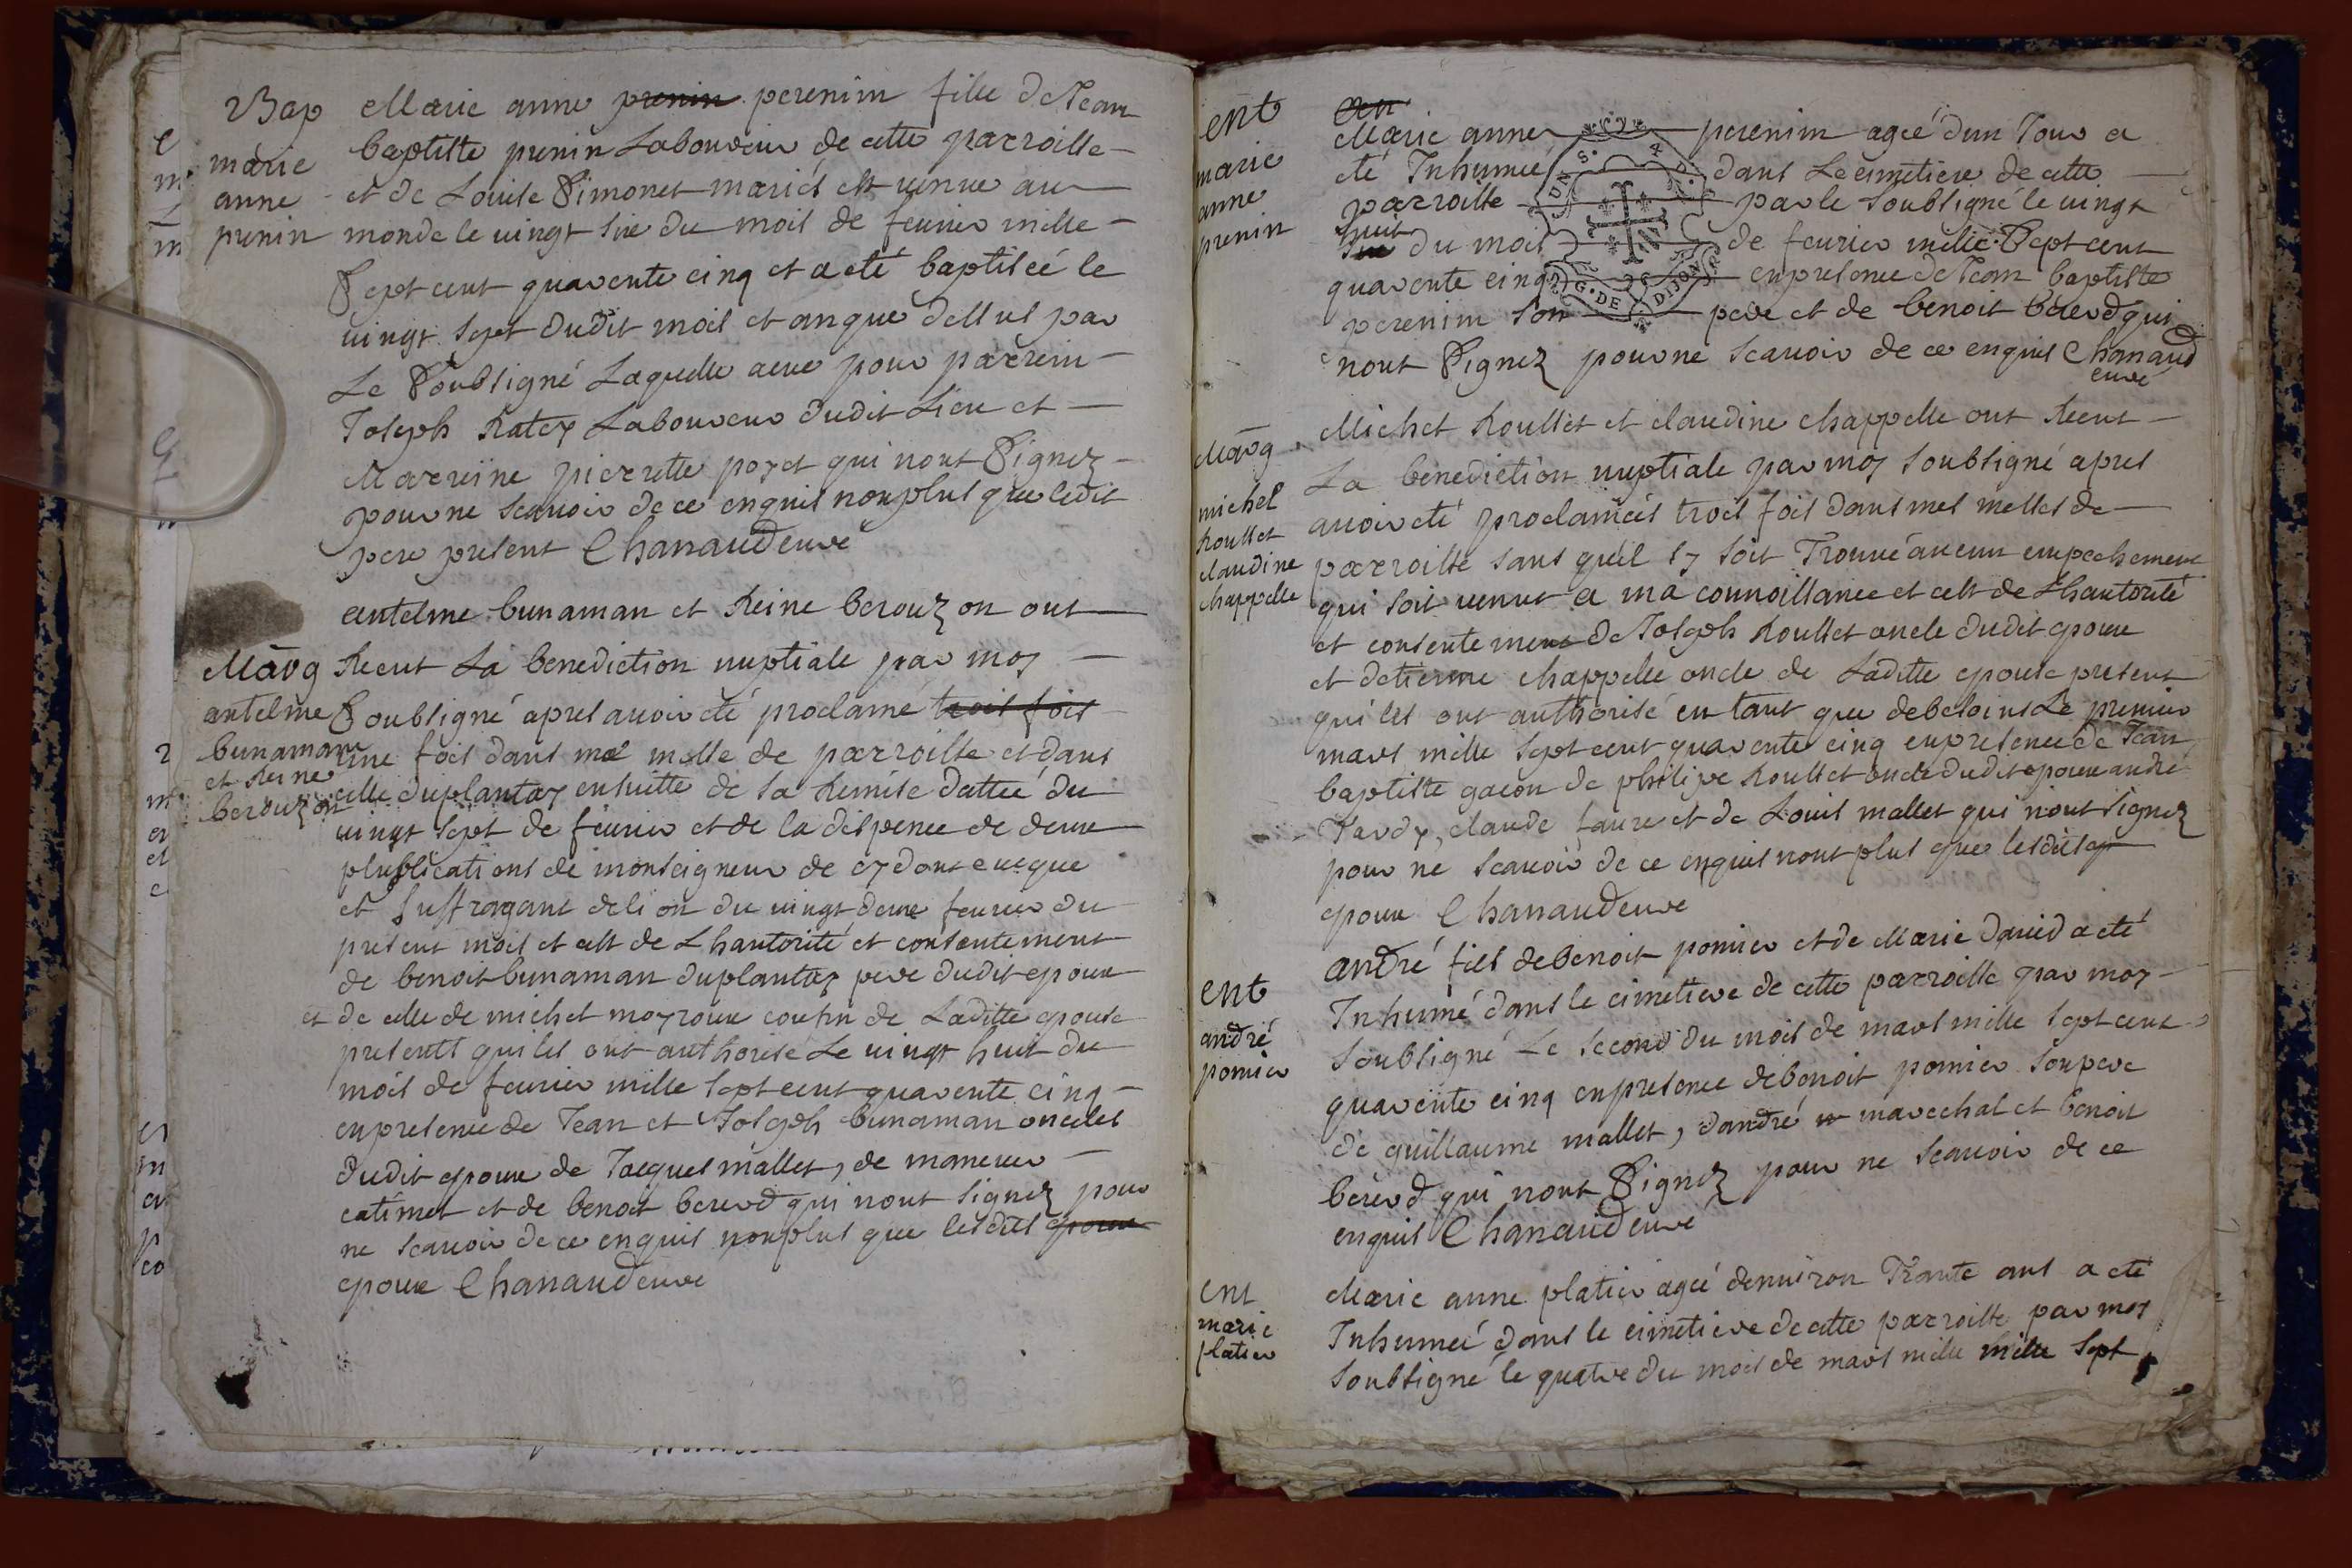 Bap
marie
anne
prenin
Marie anne prenin perenim fille de Jean
baptiste prenin Laboureur de cette parroisse
et de Louise Simonet mariés est venue au
monde le vingt six du mois de fevrier mille
Sept cent quarente cinq et a eté baptiseé le
vingt sept dudit mois et an que dessus par
Le Soubsigné Laquelle a eue pour parrein
Joseph Ratey Laboureur dudit Lieu et
Marreine pierrette poyet qui nont Signez
pour ne scavoir de ce enquis non plus que ledit
pere present Chanaud curé
Marg
antelme
bunaman
et Reine
berouzon
antelme bunaman et Reine berouzon ont
Receut La benediction nuptiale par moy
Soubsigné apres avoir eté proclamé trois fois
une fois dans ma messe de parroisse et dans
celle duplantay ensuitte de sa Remise dattée du
vingt sept de fevrier et de la dispence de deux
plublications de monseigneur de cydon eveque
et suffragant de lion du vingt deux fevrier du
present mois et cest de Lhautorité et consentement
de benoit bunaman duplantay pere dudit epoux
et de celle de michel moyroux cousin de Laditte epouse
presents qui les ont authorisé Le vingt huit du
mois de fevrier mille sept cent quarente cinq
en presence de Jean et Joseph bunaman oncles
dudit epoux de Jacques mallet, de
catimet et de benoit bererd qui nont signez pour
ne scavoir de ce enquis non plus que lesdits epoux
epoux Chanaud curé
ent
marie
anne
prenin
an
Marie anne perenim ageé dun Jour a
eté Inhumeé dans Le cimetiere de cette
parroisse par le Soubsigné le vingt
huit
six du mois de fevrier mille Sept cent
quarente cinq en presence de Jean baptiste
perenim son pere et de benoit bererd qui
nont Signez pour ne scavoir de ce enquis Chanaud
curé
BNS. 4 D.
G. DE DIJON
Marg
michel
Roullet
claudine
chappelle
Michel Roullet et claudine chappelle ont Receut
La benediction nuptiale par moy soubsigné apres
avoir eté proclameés trois fois dans mes messes de
parroisse sans quil sy soit Trouvé aucun empechement
qui soit venut a ma connoissance et cest de Lhautorité
et consentement de Joseph Roullet oncle dudit epoux
et detienne chappelle oncle de Laditte epouse present
qui les ont authorisé en tant que de besoins Le premier
mars mille sept cent quarente cinq en presence de Jean
baptiste gacon de philipe Roullet oncle dudit epoux andré
Tardy, claude faure et de Louis mallet qui nont signez
pour ne scavoir de ce enquis nont plus que lesdits ep
epoux Chanaud curé
ent
andré
pomier
andré fils de benoit pomier et de Marie david a eté
Inhumé dans le cimetiere de cette parroisse par moy
soubsigné Le second du mois de mars mille sept cent
quarente cinq en presence de benoit pomier son pere
de guillaume mallet, dandré marechal et benoit
bererd qui nont Signez pour ne scavoir de ce
enquis Chanaud curé
ent
marie
platier
Marie anne platier ageé denviron Trante ans a eté
Inhumeé dans le cimetiere de cette parroisse par moy
soubsigné le quatre du mois de mars mille mille sept